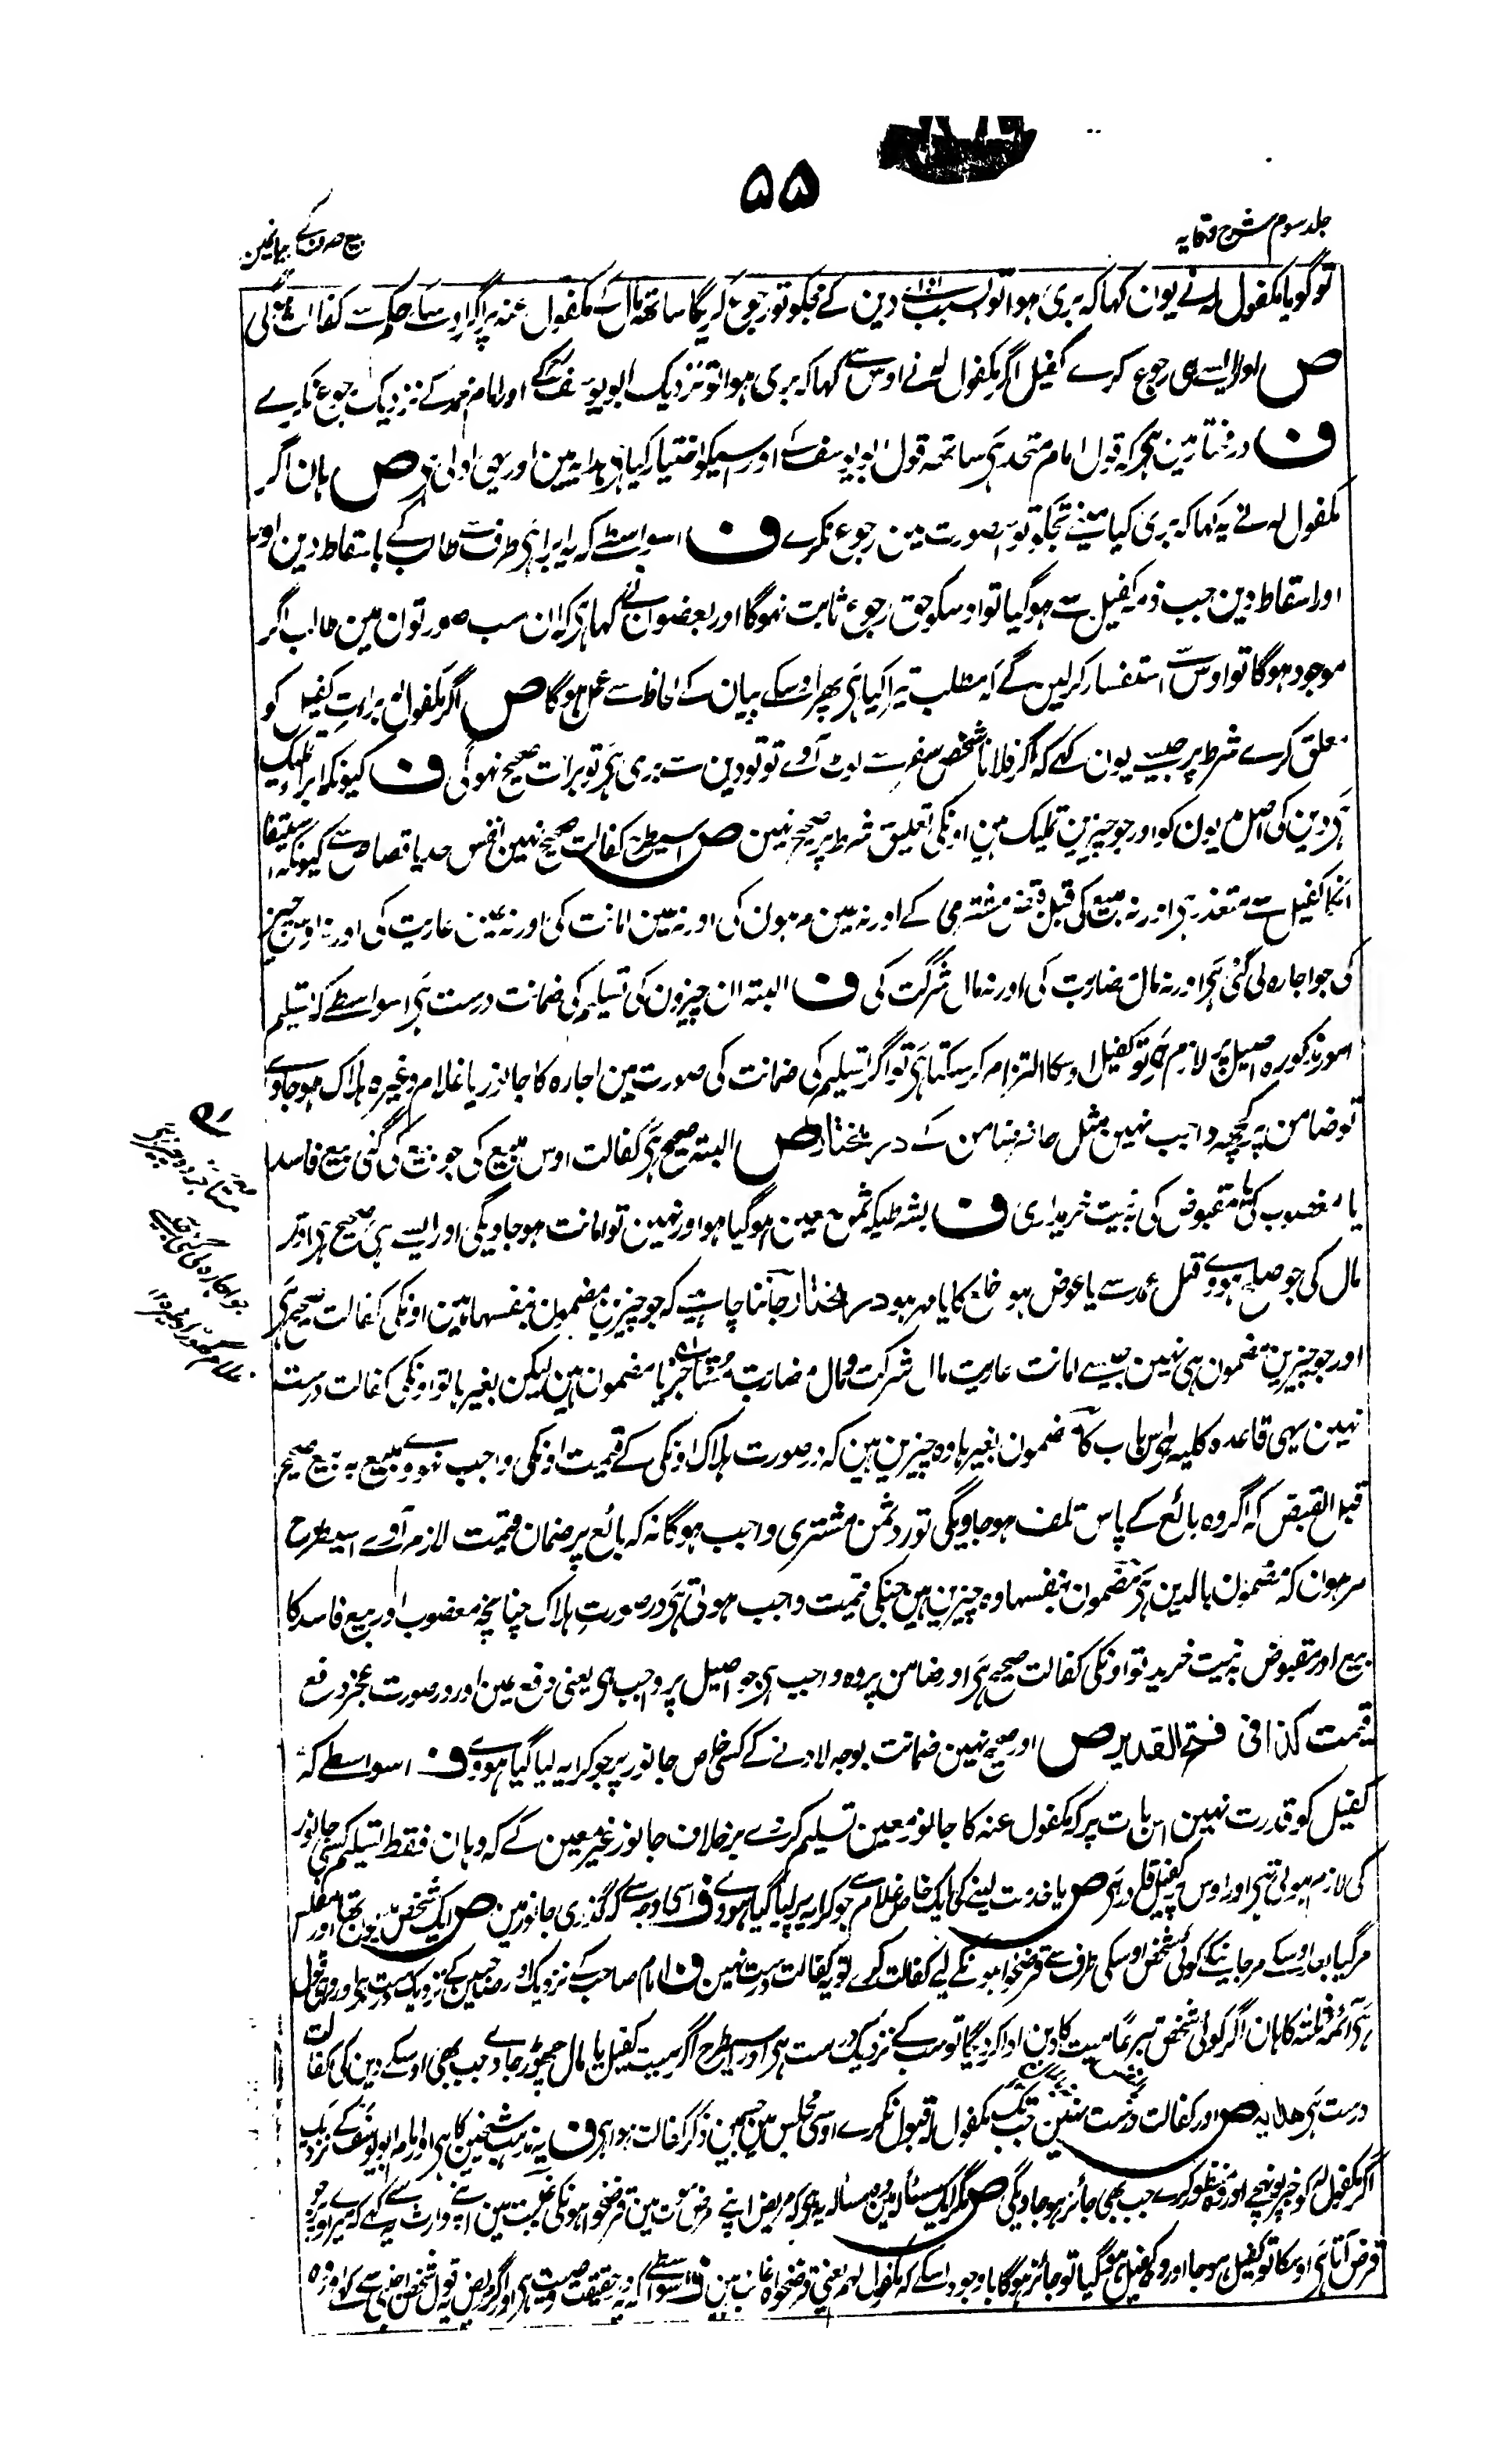 ۵۵
جلد سوم شرح وقایہ
بیع صرف کے بیانمین
تو گویا مکفول لہ نے یون کہا کہ بری ہوا تو بسبب ادا دین کے مجکو تو رجوع کریگا ساتھ مال کے مکفول عنہ پر اگر اوسکے حکم سے کفالت کی
ص اور ایسے ہی رجوع کرے کفیل اگر مکفول لہ نے اوس سے کہا کہ بری ہوا تو نزدیک ابو یوسف کے اور امام محمد کے نزدیک رجوع نکرے
ف در مختار مین ہے کہ قول امام متحد ہی ساتھ قول ابو یوسف کے اور اسیکو اختیار کیا ہی ہدایہ مین اور یہی اولی ہی ص ہان اگر
مکفول لہ نے یہ کہا کہ بری کیا مینے تجکو تو اس صورت مین رجوع نکرے ف اسواسطے کہ یہ ابرا ہی طرف سے طالب کے باسقاط دین اوسے
اور اسقاط دین جب ذمہ کفیل سے ہو گیا تو اوسکو حق رجوع ثابت نہوگا اور بعضوں نے کہا ہی کہ ان سب صورتون مین طالب اگر
موجود ہوگا تو اوس سے استفسار کرلین گے کہ مطلب تیرا کیا ہی پھر اوسکے بیان کے لحاظ سے عمل ہوگا ص اگر مکفول لہ براءت کفیل کو
معلق کرے شرط پر جیسے یون کہے کہ اگر فلانا شخص سفر سے لوٹ آوے تو تو دین سے بری ہی تو براءت صحیح نہوگی ف کیونکہ ابرا تملیک
ہی دین کی اصل مدیون کو اور جو چیزین تملیک ہین اونکی تعلیق شرط پر صحیح نہین ص اسیطرح کفالت صحیح نہین نفس حد یا قصاص سے کیونکہ استیفا
انکا کفیل سے متعذر ہی اور نہ مبیع کی قبل قبضہ مشتری کے اور نہ عین مرہون کی اور نہ عین امانت کی اور نہ عین عاریت کی اور نہ اوس چیز
کی جو اجارہ لی گئی ہی اور نہ مال مضاربت کی اور نہ مال شرکت کی ف البتہ ان چیزون کی تسلیم کی ضمانت درست ہی اسواسطے کہ تسلیم
امور مذکورہ اصیل پر لازم ہی تو کفیل اوسکا التزام کر سکتا ہی تو اگر تسلیم کی ضمانت کی صورت مین اجارہ کا جانور یا غلام وغیرہ ہلاک ہو جاوے
تو ضامن پر کچھ واجب نہین مثل حاضر ضامن کے در مختار ص البتہ صحیح ہی کفالت اوس مبیع کی جو بیع کی گئی بیع فاسد
یا مغصوب کی یا مقبوض کی بہ نیت خریداری ف بشرطیکہ ثمن معین ہو گیا ہو اور نہین تو امانت ہو جاویگی اور ایسے ہی صحیح ہی اوس
مال کی جو صلح ہووے قتل عمد سے یا عوض ہو خلع کا یا مہر ہو در مختار جاننا چاہیے کہ جو چیزین مضمون بنفسہا ہین اونکی کفالت صحیح ہی
اور جو چیزین مضمون ہی نہین جیسے امانت عاریت مال شرکت و مال مضاربت و مستاجر یا مضمون ہین لیکن بغیرہا تو اونکی کفالت درست
نہین یہی قاعدہ کلیہ ہی اس باب کا مضمون بغیرہا وہ چیزین ہین کہ در صورت ہلاک اونکی کے قیمت اونکی واجب نہووے مبیع بہ بیع صحیح
قبل القبض کہ اگر وہ بائع کے پاس تلف ہو جاویگی تو رد ثمن مشتری واجب ہوگا نہ کہ بائع پر ضمان قیمت لازم آوے اسیطرح
مرہون کہ مضمون بالدین ہی مضمون بنفسہا وہ چیزین ہین جنکی قیمت واجب ہوتی ہی در صورت ہلاک چنانچہ مغصوب اور بیع فاسد کا
مبیع اور مقبوض بہ نیت خرید تو اونکی کفالت صحیح ہی اور ضامن پر وہ واجب ہی جو اصیل پر واجب ہی یعنی دفع عین اور در صورت عجز دفع
قیمت کذا فی فتح القدیر ص اور صحیح نہین ضمانت بوجھ لادنے کے کسی خاص جانور پر جو کرایہ لیا گیا ہووے ف اسواسطے کہ
کفیل کو قدرت نہین اس بات پر کہ مکفول عنہ کا جانور معین تسلیم کرے بر خلاف جانور غیر معین کے کہ وہان فقط تسلیم کسی جانور
کی لازم ہوتی ہی اور اوس پر کفیل قادر ہی ص یا خدمت لینے کی ایک خاص غلام سے جو کرایہ پر لیا گیا ہووے ف اسی وجہ سے کہ گذری جانور مین ص ایک شخص مدیون تھا اور مفلس
مر گیا بعد اوسکے مر جانیکے کوئی شخص اوسکی طرف سے قرضخواہونکے لیے کفالت کرے تو یہ کفالت درست نہین ف امام صاحب کے نزدیک اور صاحبین کے نزدیک درست ہی اور یہی قول
ہی ائمہ ثلثہ کا ہان اگر کوئی شخص تبرعا میت کا دین ادا کر دیگا تو سب کے نزدیک درست ہی اور اسیطرح اگر میت کفیل یا مال چھوڑ جاوے جب بھی اوسکے دین کی کفالت
درست ہی ہدایہ ص اور کفالت درست نہین جب تک مکفول لہ قبول نکرے اوسی مجلس مین جسمین ذکر کفالت ہوا ہی ف یہ مذہب شیخین کا ہی اور امام ابو یوسف کے نزدیک
اگر مکفول لہ کو خبر پہونچے اور وہ منظور کرے جب بھی جائز ہو جاویگی ص مگر ایک مسئلہ مین وہ مسئلہ یہ ہی کہ مریض اپنے مرض موت مین قرضخواہونکی غیبت مین اپنے وارث سے کہے کہ میرے اوپر جو
قرض آتا ہی اوسکا تو کفیل ہو جا اور وہ کفیل ہو گیا تو جائز ہوگا باوجود اسکے کہ مکفول لہم یعنی قرضخواہ غائب ہین ف اسواسطے کہ یہ حقیقت مین وصیت ہی اور اگر مریض یہ قول شخص اجنبی سے کہے اور وہ